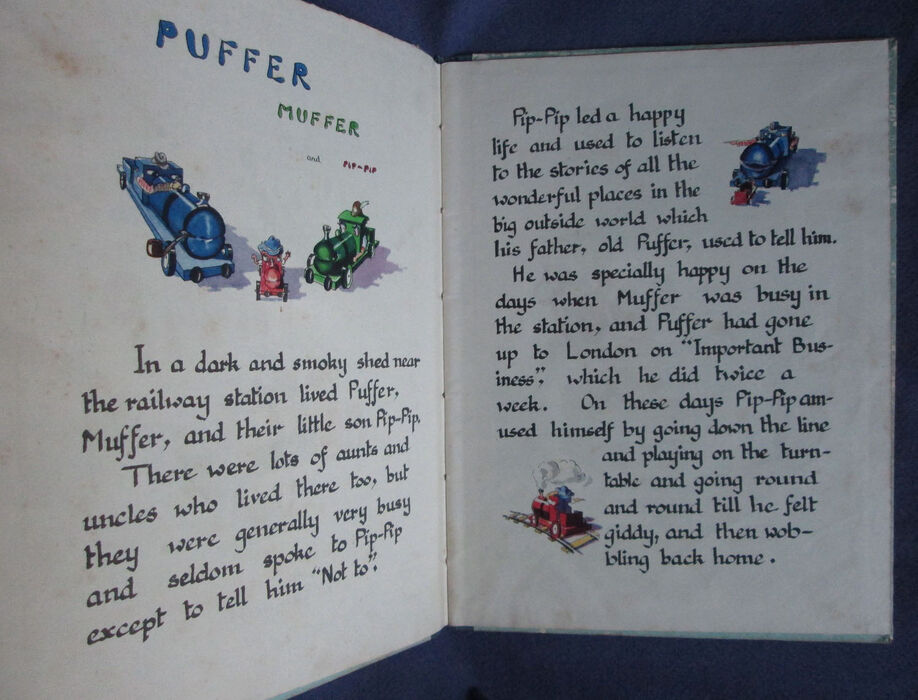 PUFFER
MUFFER
and PIP-PIP
In a dark and smoky shed near
the railway station lived Puffer,
Muffer, and their little son Pip-Pip.
There were lots of aunts and
uncles who lived there too, but
they were generally very busy
and seldom spoke to Pip-Pip
except to tell him "Not to".
Pip-Pip led a happy
life and used to listen
to the stories of all the
wonderful places in the
big outside world which
his father, old Puffer, used to tell him.
He was specially happy on the
days when Muffer was busy in
the station, and Puffer had gone
up to London on "Important Bus-
iness", which he did twice a
week. On these days Pip-Pip am-
used himself by going down the line
and playing on the turn-
table and going round
and round till he felt
giddy, and then wob-
bling back home.